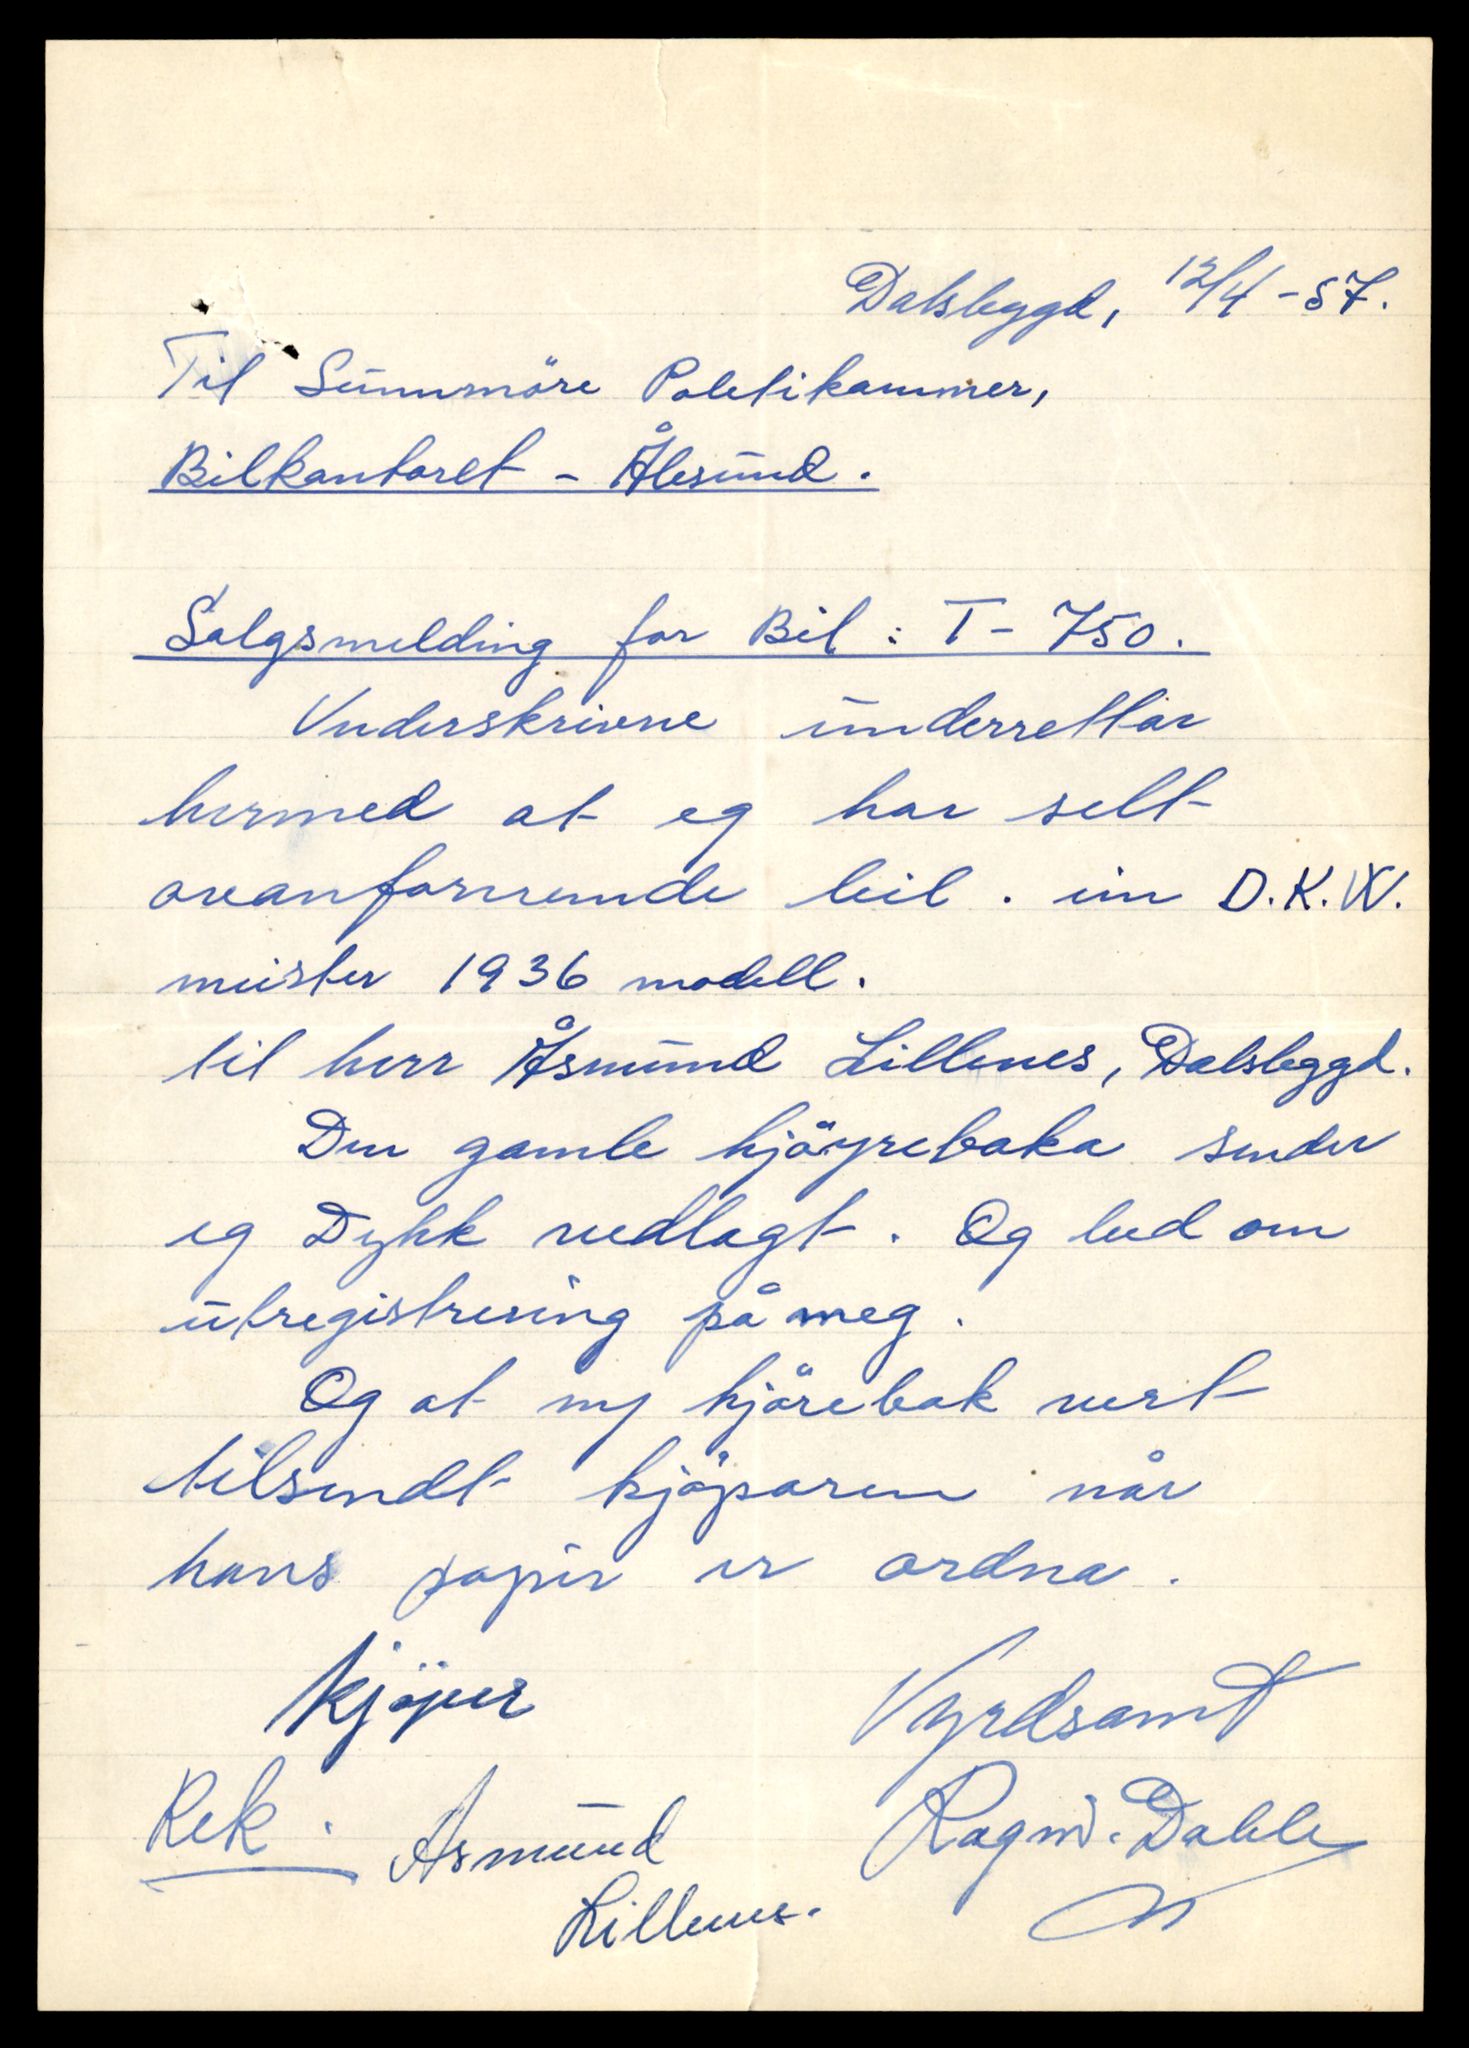 Dalsbygd, 12/4 - 57.
Til Sunnmöre Politikammer,
Bilkontoret - Ålesund.
Salgsmelding for Bil : T - 750.
Underskrivne underrettar
hermed at eg har selt
ovanfornemde bil. ein D.K.W.
meister 1936 modell.
til herr Åsmund Lillenes, Dalsbygd.
Den gamle kjöyreboka sender
eg Dykk vedlagt. Og bed om
utregistrering på meg.
Og at ny kjörebok vert
tilsendt kjöparen når
hans papir er ordna.
Kjöper
Vyrdsamt
Rek.
Asmund
Ragnv. Dahle
Lillenes.